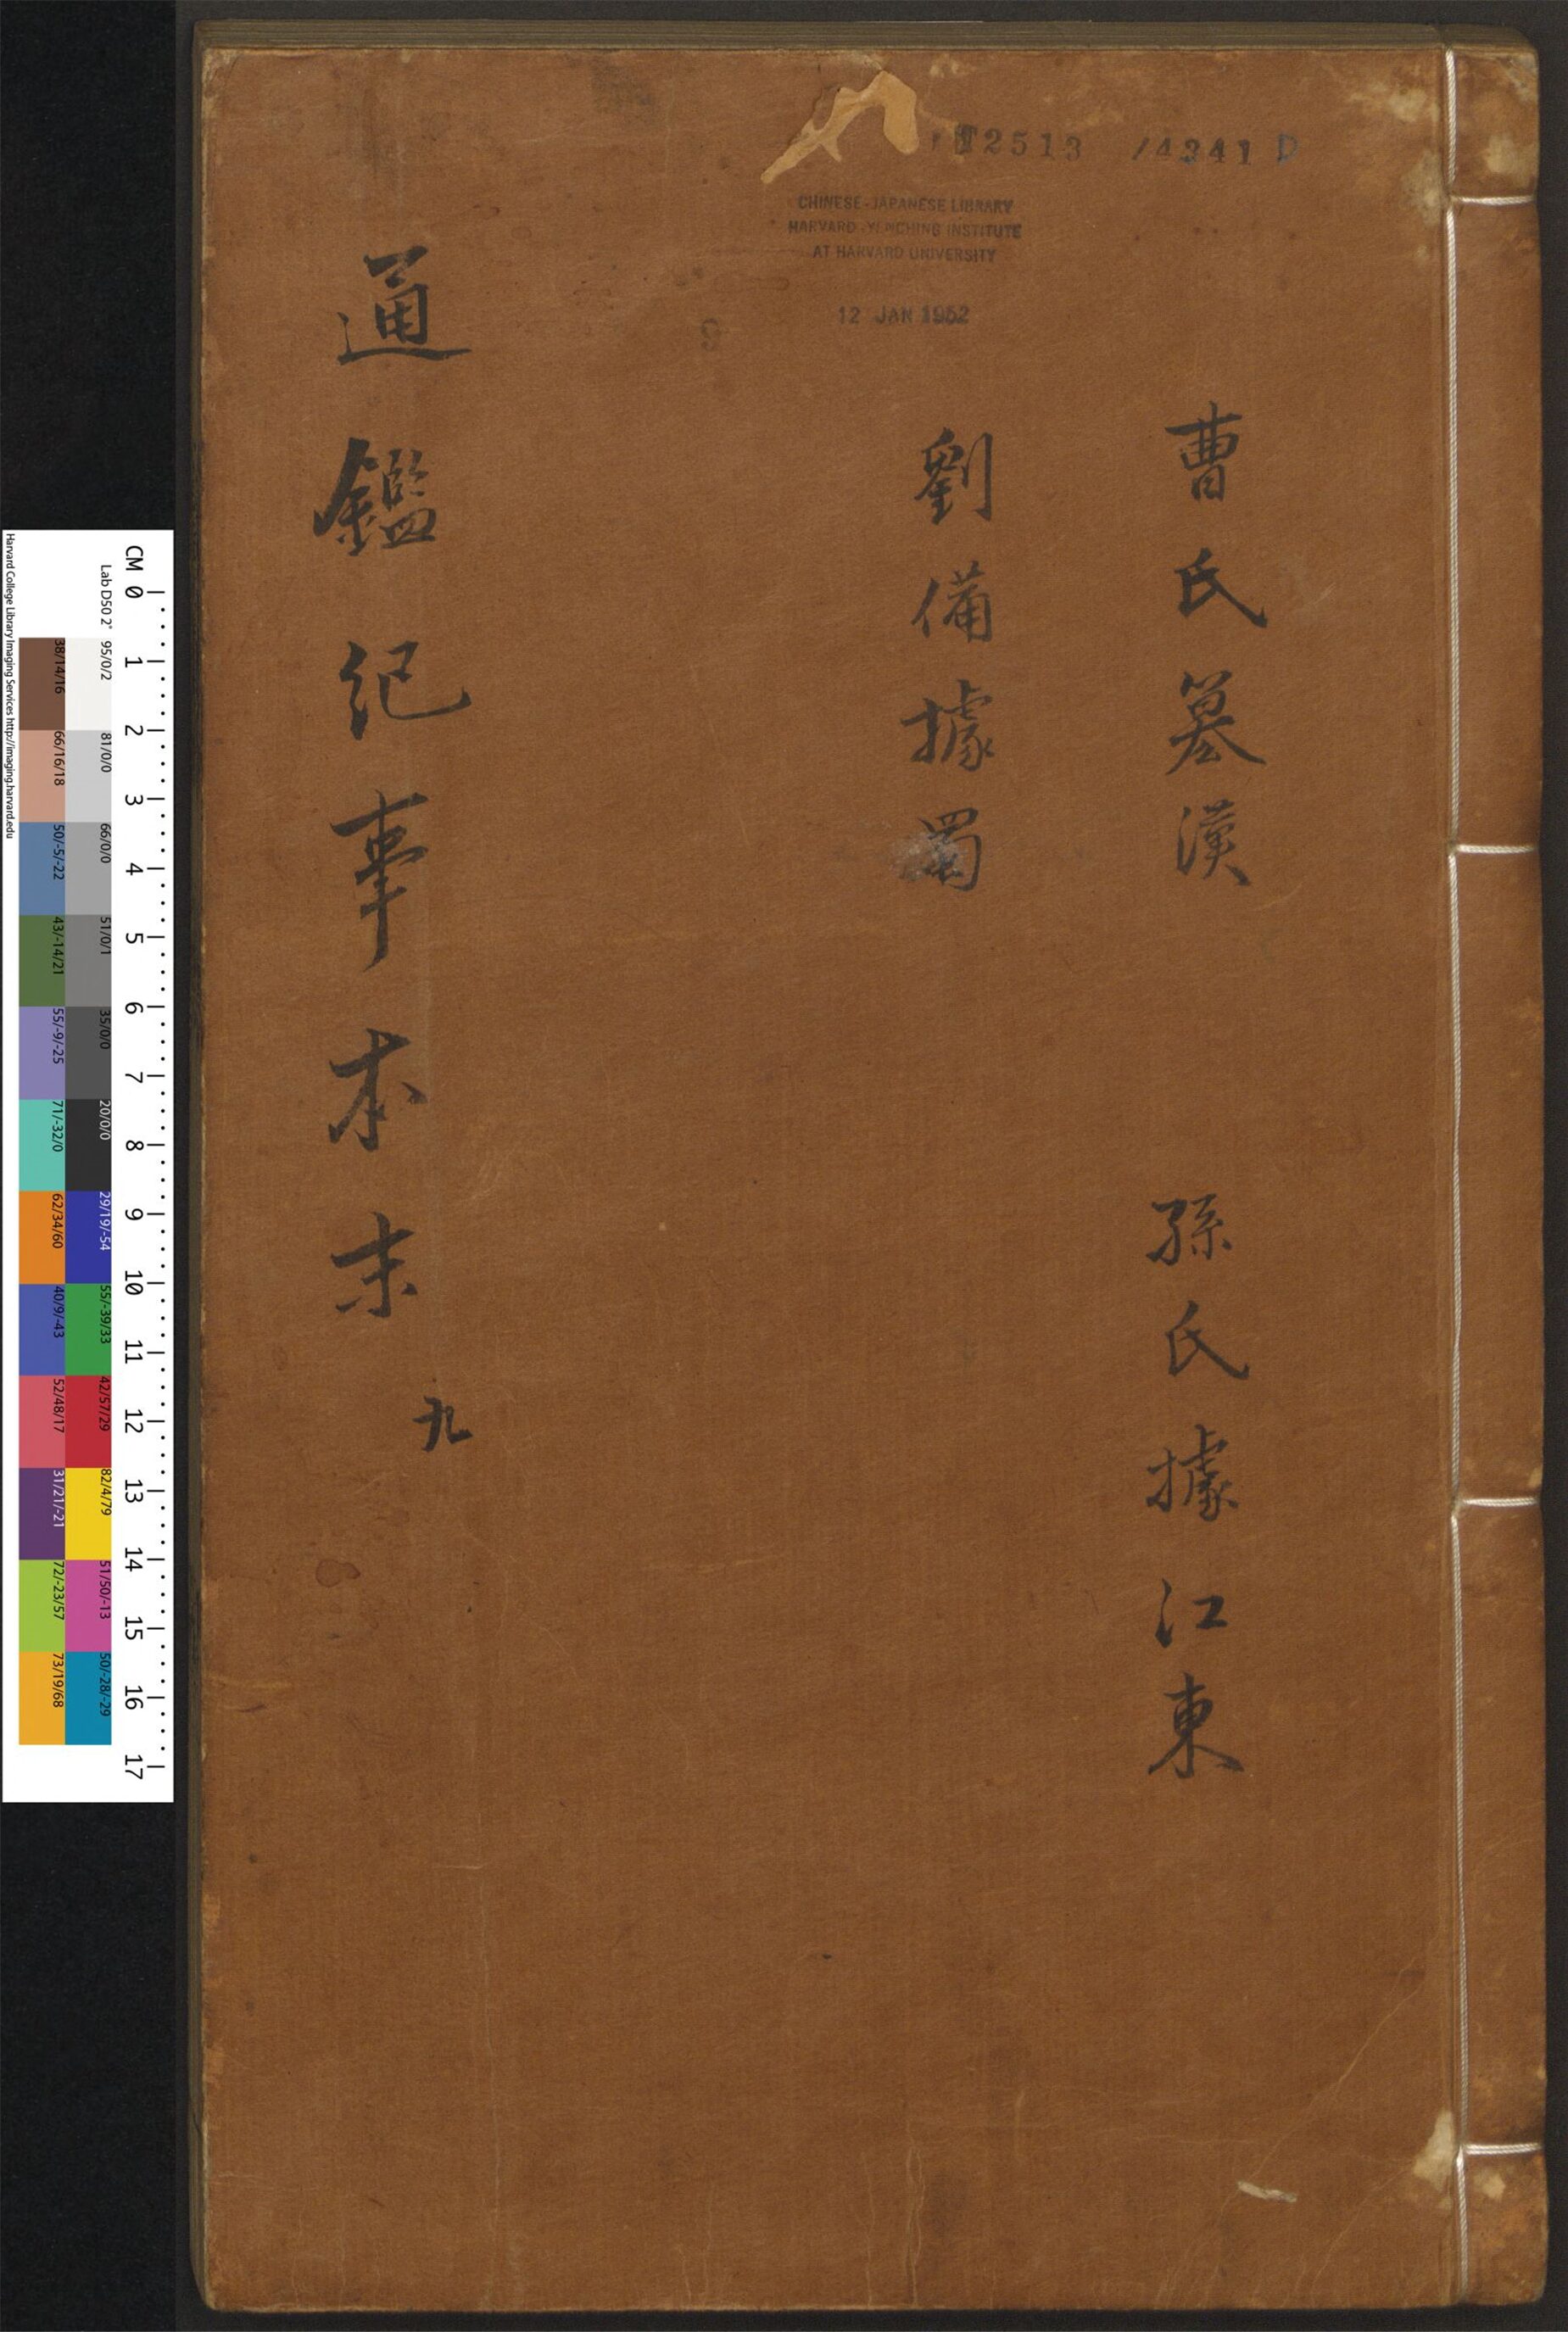 T2513 /4341 D
CHINESE-JAPANESE LIBRARY
HARVARD-YENCHING INSTITUTE
AT HARVARD UNIVERSITY
12 JAN 1952
曹氏篡漢 孫氏據江東
劉備據蜀
通鑑紀事本末 九
CM 0 1 2 3 4 5 6 7 8 9 10 11 12 13 14 15 16 17
Lab D50 2° 95/0/2 81/0/0 66/0/0 51/0/1 35/0/0 20/0/0 29/19/-54 55/-39/33 42/57/29 82/4/79 51/50/-13 50/-28/-29
38/14/16 66/16/18 50/-5/-22 43/-14/21 55/-9/-25 71/-32/0 62/34/60 40/9/-43 52/48/17 31/21/-21 72/-23/57 73/19/68
Harvard College Library Imaging Services http://imaging.harvard.edu